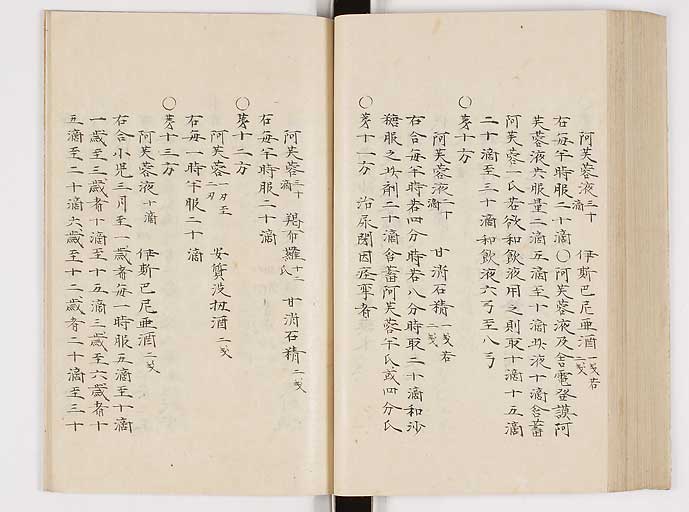 阿芙蓉液 三十滴 伊斯巴尼亜酒 一戔若二戔
右每半時服二十滴〇阿芙蓉液及舎電登謨阿
芙蓉液共服量二滴五滴至十滴此液十滴舎蓄
阿芙蓉一氏若欲和飲液用之則取十滴十五滴
二十滴至三十滴和飲液六弓至八弓
〇第十方
阿芙蓉液 二十滴 甘消石精 一戔若二戔
右合每半時若四分時若八分時取二十滴和沙
糖服之此劑二十滴舎蓄阿芙蓉半氏或四分氏
〇第十一方 治尿閉因痙攣者
阿芙蓉 三十滴 羯布羅 十二氏 甘消石精 二戔
右每半時服二十滴
〇第十二方
阿芙蓉 一刃至二刃 安質没扭酒 二戔
右每一時半服二十滴
〇第十三方
阿芙蓉液 十滴 伊斯巴尼亜酒 二戔
右合小児三月至一歲者每一時服五滴至十滴
一歲至三歲者十滴至十五滴三歲至六歲者十
五滴至二十滴六歲至十二歲者二十滴至三十